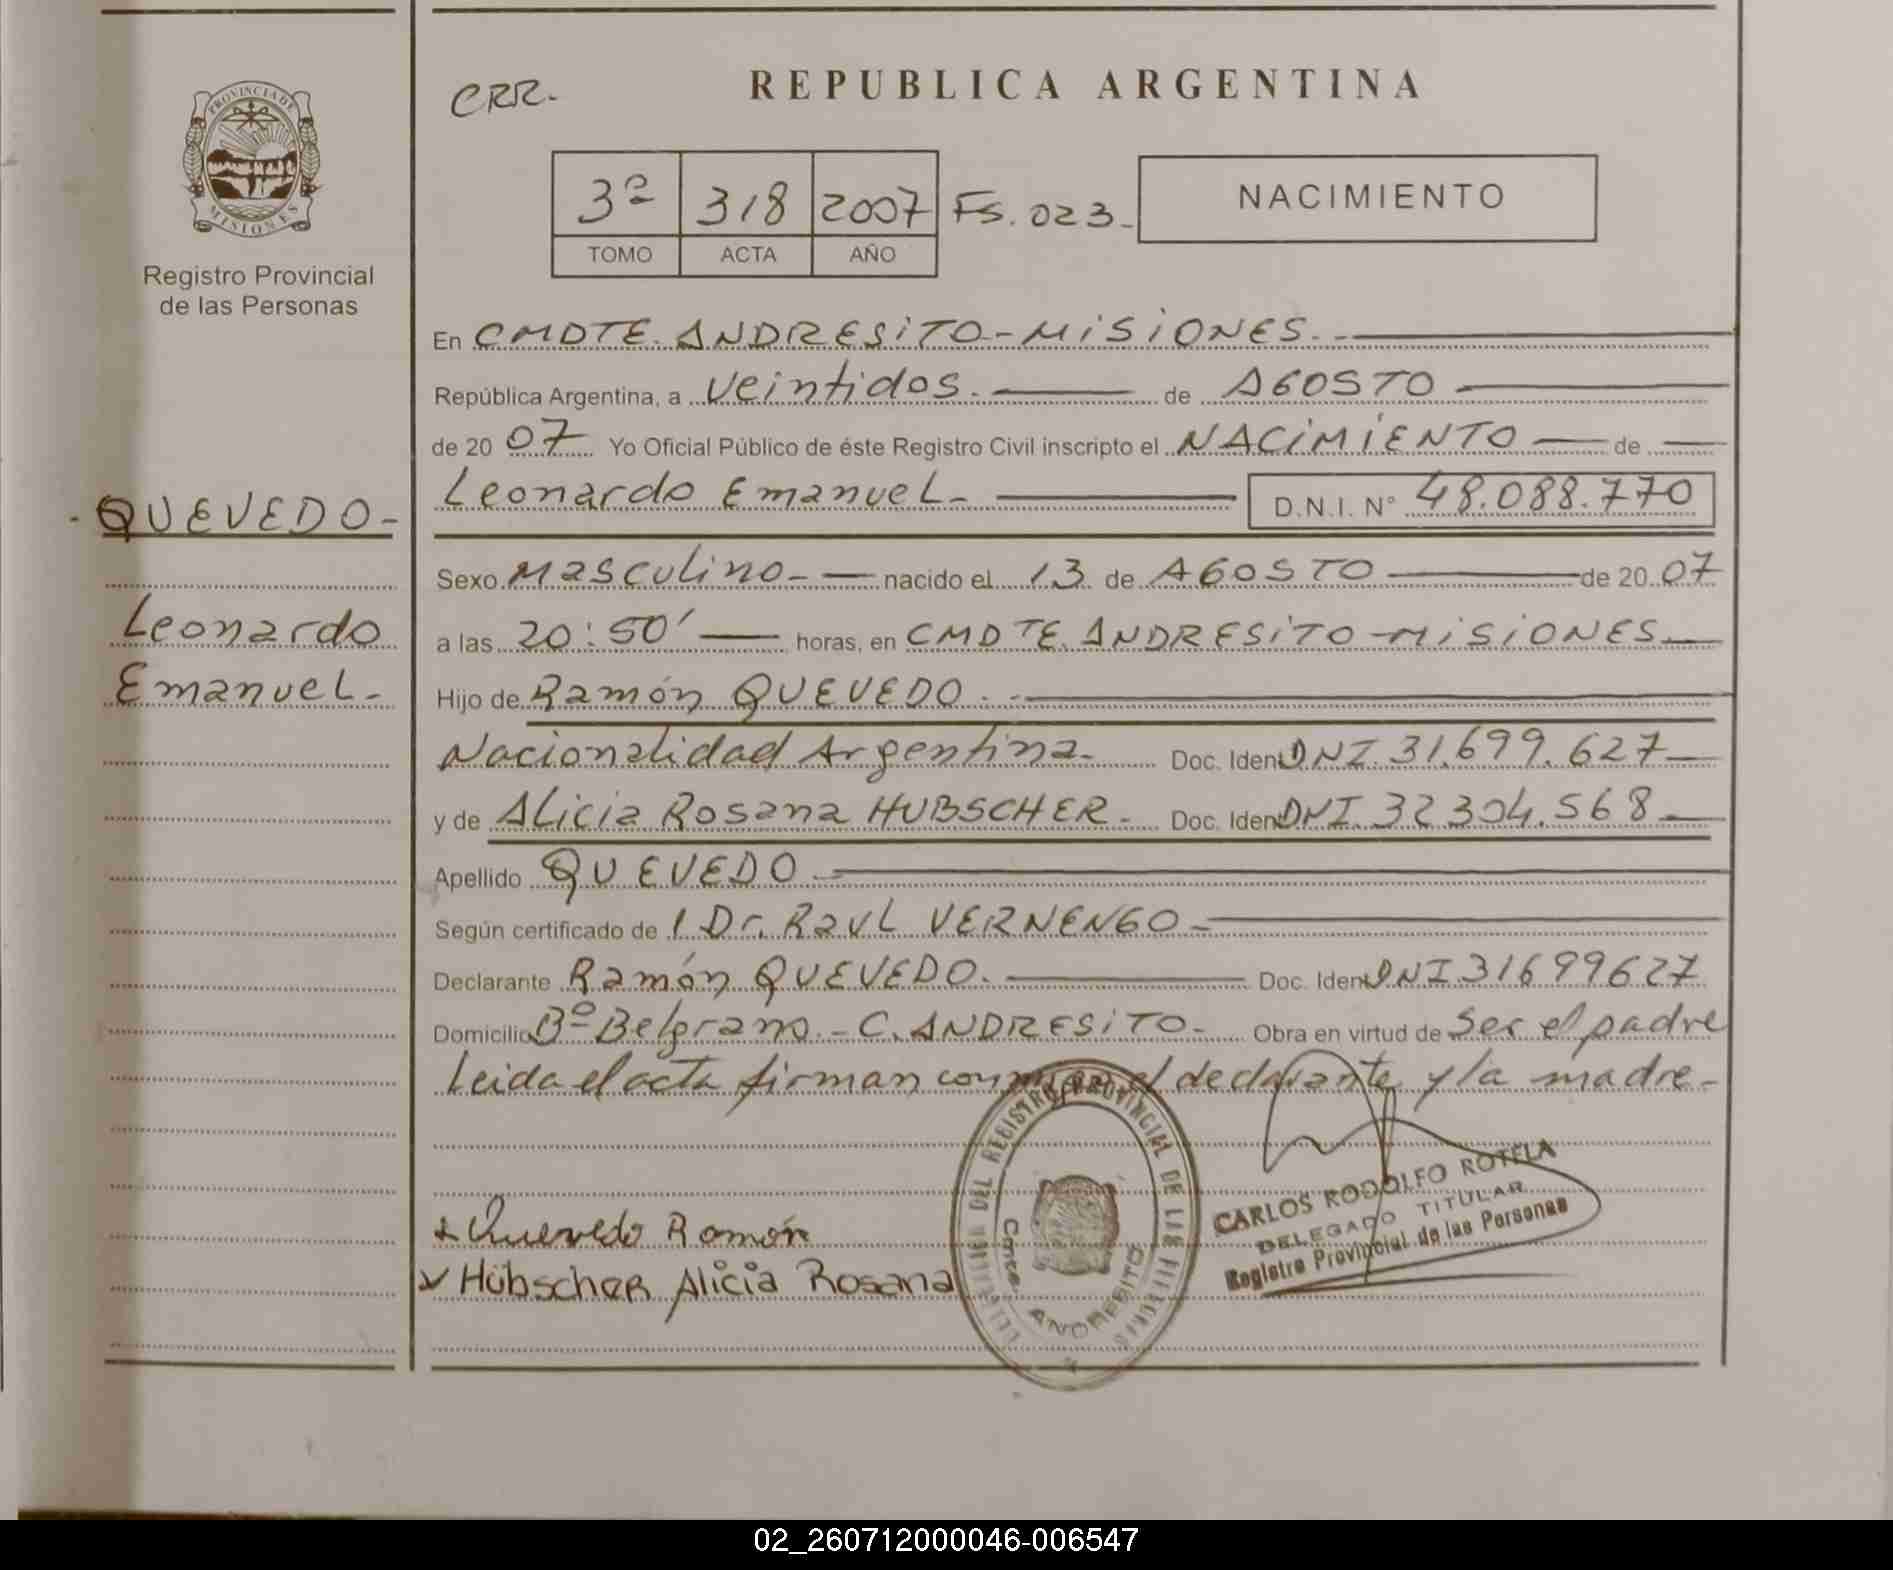 PROVINCIA DE
MISIONES
Registro Provincial
de las Personas
QUEVEDO-
Leonardo
Emanuel-
CRR-
REPUBLICA ARGENTINA
3º 318 2007 Fs. 023-
TOMO ACTA AÑO
NACIMIENTO
En CMDTE. ANDRESiTO-MiSiONES.-
República Argentina, a veintidos. de AGOSTO
de 20 07 Yo Oficial Público de éste Registro Civil inscripto el NACiMiENTO de
Leonardo Emanuel- D.N.I. N° 48.088.770
Sexo Masculino- nacido el 13 de AGOSTO de 20 07
a las 20:50' horas, en CMDTE. ANDRESiTO-MiSiONES
Hijo de Ramón QUEVEDO.-
Nacionalidad Argentina- Doc. Ident DNI. 31.699.627-
y de Alicia Rosana HUBSCHER- Doc. Ident DNI. 32304.568-
Apellido QUEVEDO-
Según certificado de 1 Dr. Raul VERNENGO-
Declarante Ramón QUEVEDO. Doc. Ident DNI 31699627
Domicilio Bº Belgrano.- C. ANDRESiTO- Obra en virtud de Ser el padre
Leida el acta firman el declarante y la madre-
Quevedo Ramón
Hübscher Alicia Rosana
DEL REGISTRO PROVINCIAL DE LAS PERSONAS
Cmte. ANDRESITO
CARLOS RODOLFO ROTELA
DELEGADO TITULAR
Registro Provincial de las Personas
02_260712000046-006547